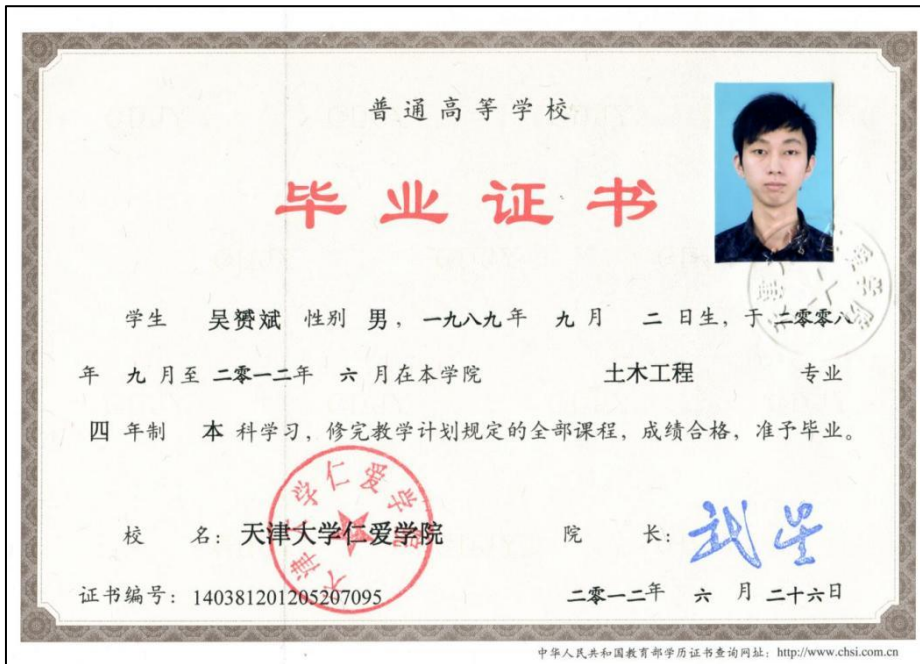 普通高等学校
毕业证书
学生 吴赟斌 性别 男，一九八九年 九月 二日生，于 二零零八
年 九月至 二零一二年 六月在本学院 土木工程 专业
四年制 本科学习，修完教学计划规定的全部课程，成绩合格，准予毕业。
校 名：天津大学仁爱学院 院 长：
天津大学仁爱学院
证书编号：140381201205207095 二零一二年 六月 二十六日
中华人民共和国教育部学历证书查询网址：http://www.chsi.com.cn